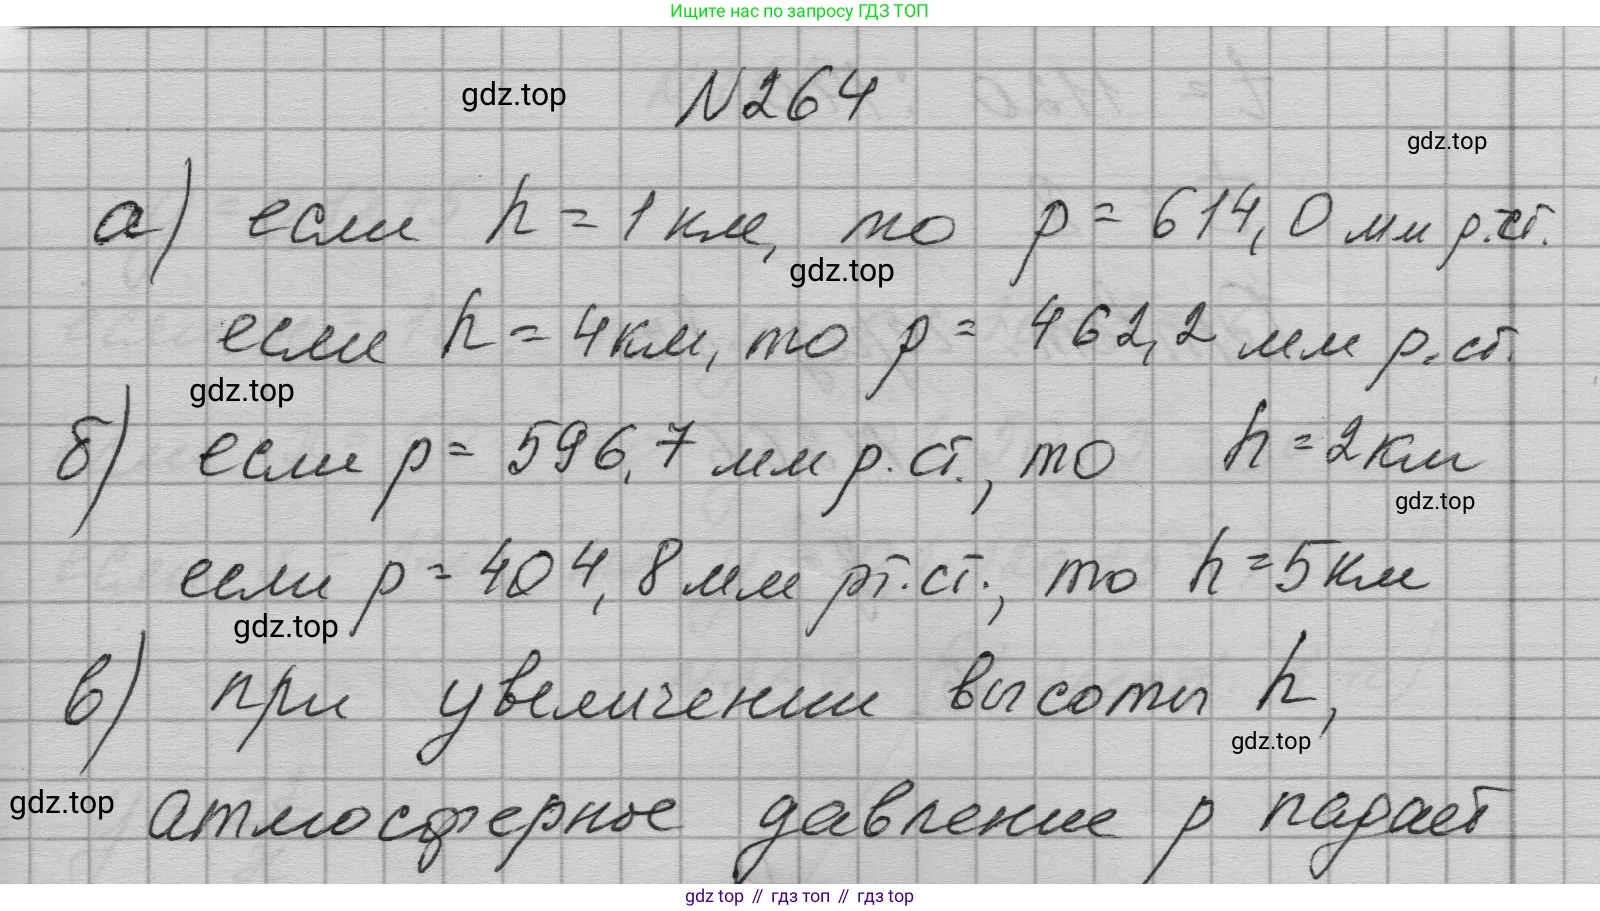 Ищите нас по запросу ГДЗ ТОП
gdz.top
N264
gdz.top
а) если h = 1 км, то p = 614,0 мм р.ст.
gdz.top
если h = 4 км, то p = 462,2 мм р.ст.
gdz.top
б) если p = 596,7 мм р.ст., то h = 2 км
gdz.top
если p = 404,8 мм рт.ст., то h = 5 км
gdz.top
в) при увеличении высоты h,
gdz.top
gdz.top
атмосферное давление p падает
gdz top // гдз топ // gdz top